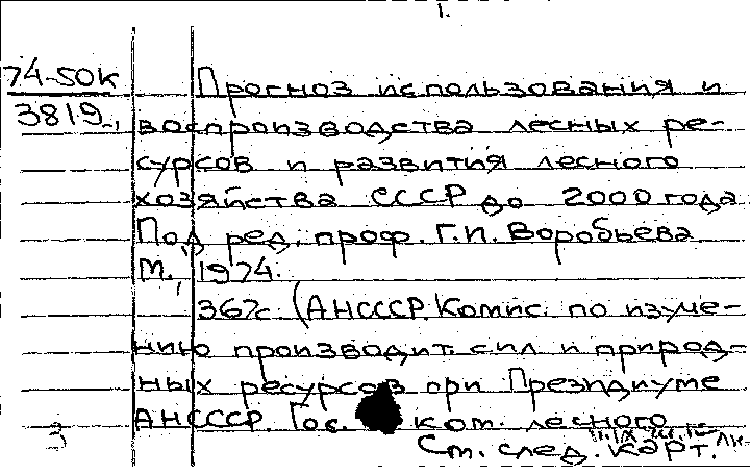 1.
74-50К
3819
Прогноз использования и
воспроизводства лесных ре-
сурсов и развития лесного
хозяйства СССР до 2000 года
Под ред. проф. Г.П. Воробьева
М., 1974.
367с. (АНСССР. Комис. по изуче-
нию производит. сил и природ-
ных ресурсов при Президиуме
АНСССР. Гос. ком. лесного
См. след. карт.
3